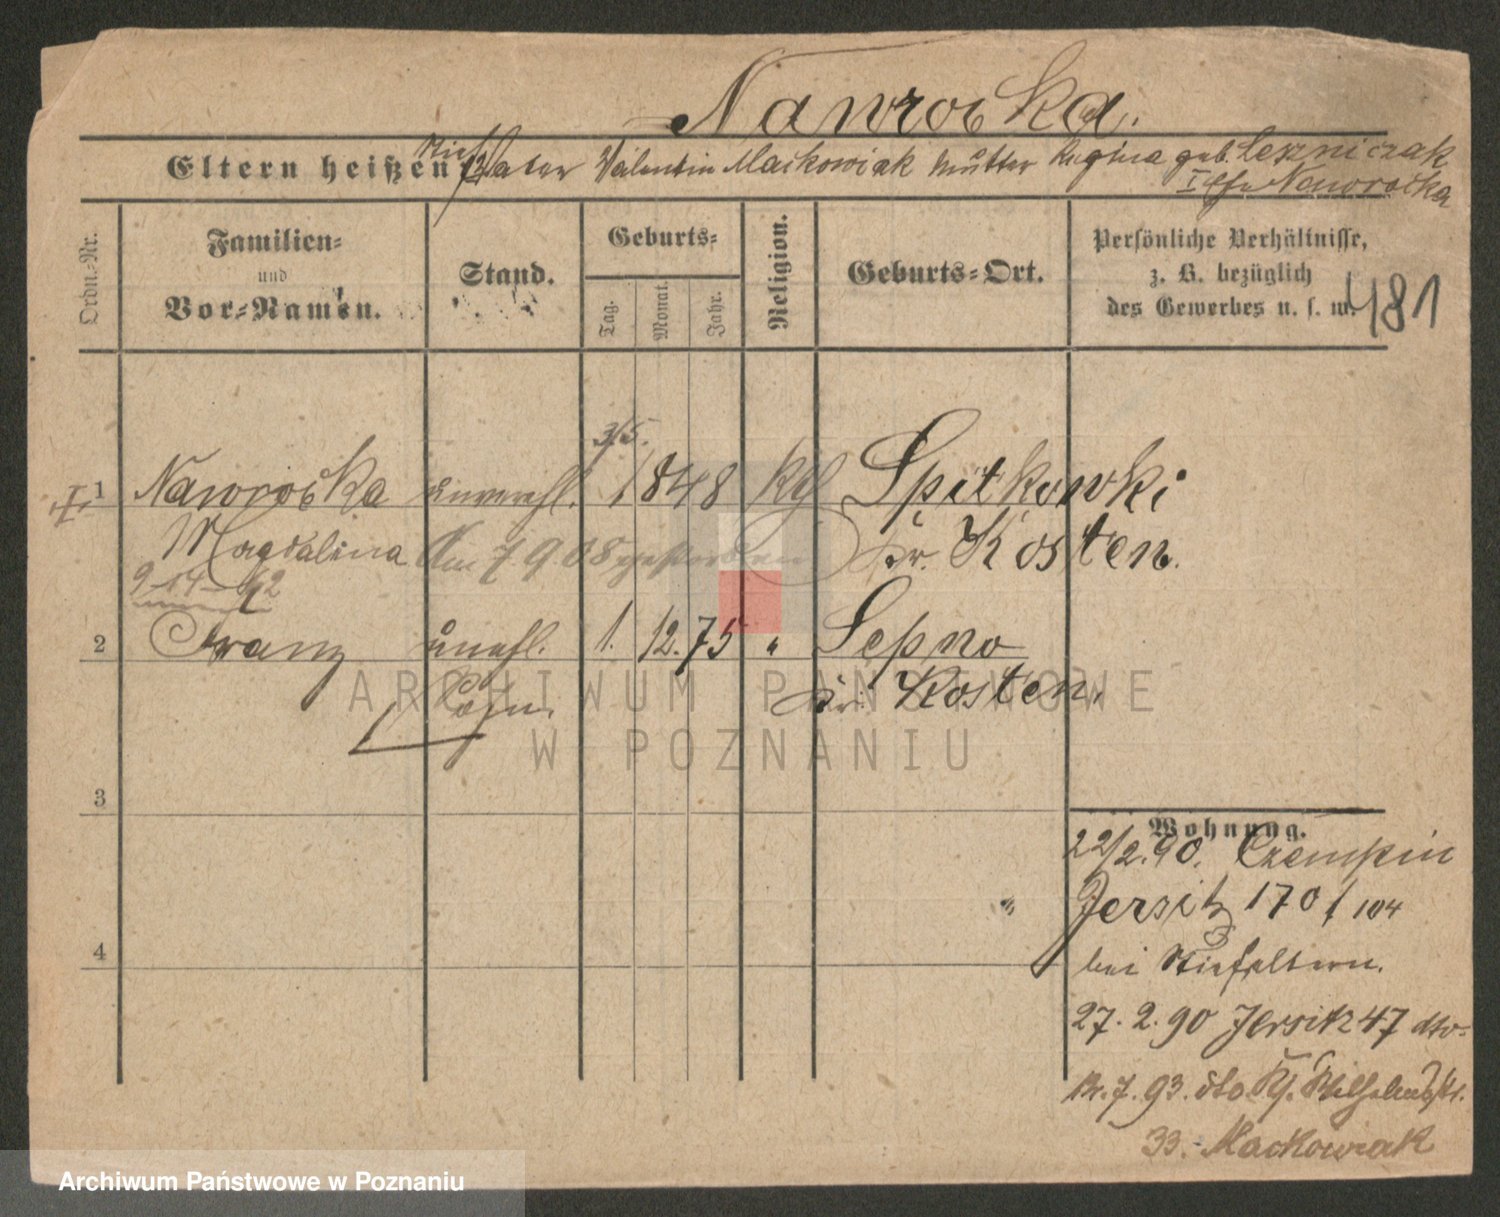 Nawrocka.
Eltern heißen Stief Vater Valentin Maćkowiak Mutter Regina geb. Leszniczak
I Ehe Nawrocka
Ordn.-Nr.
Familien-
und
Vor-Namen.
Stand.
Geburts-
Tag.
Monat.
Jahr.
Religion.
Geburts-Ort.
Persönliche Verhältnisse,
z. B. bezüglich
des Gewerbes u. s. w.
481
3/5.
I. 1 Nawrocka unverehl. 1848 kth Spitkowki
Magdalina Am 7 9 08 gestorben Kr. Kosten.
2 Franz unehl. 1. 12. 75 " Sepno
Sohn. Kr. Kosten.
3
4
Wohnung.
22/2.90. Czempin
Jersitz 170 f 104
bei Stiefeltern.
27. 2. 90 Jersitz 47 dto-
7. 93. dto Wilhelmstr.
33. Mackowiak
ARCHIWUM PAŃSTWOWE
W POZNANIU
Archiwum Państwowe w Poznaniu